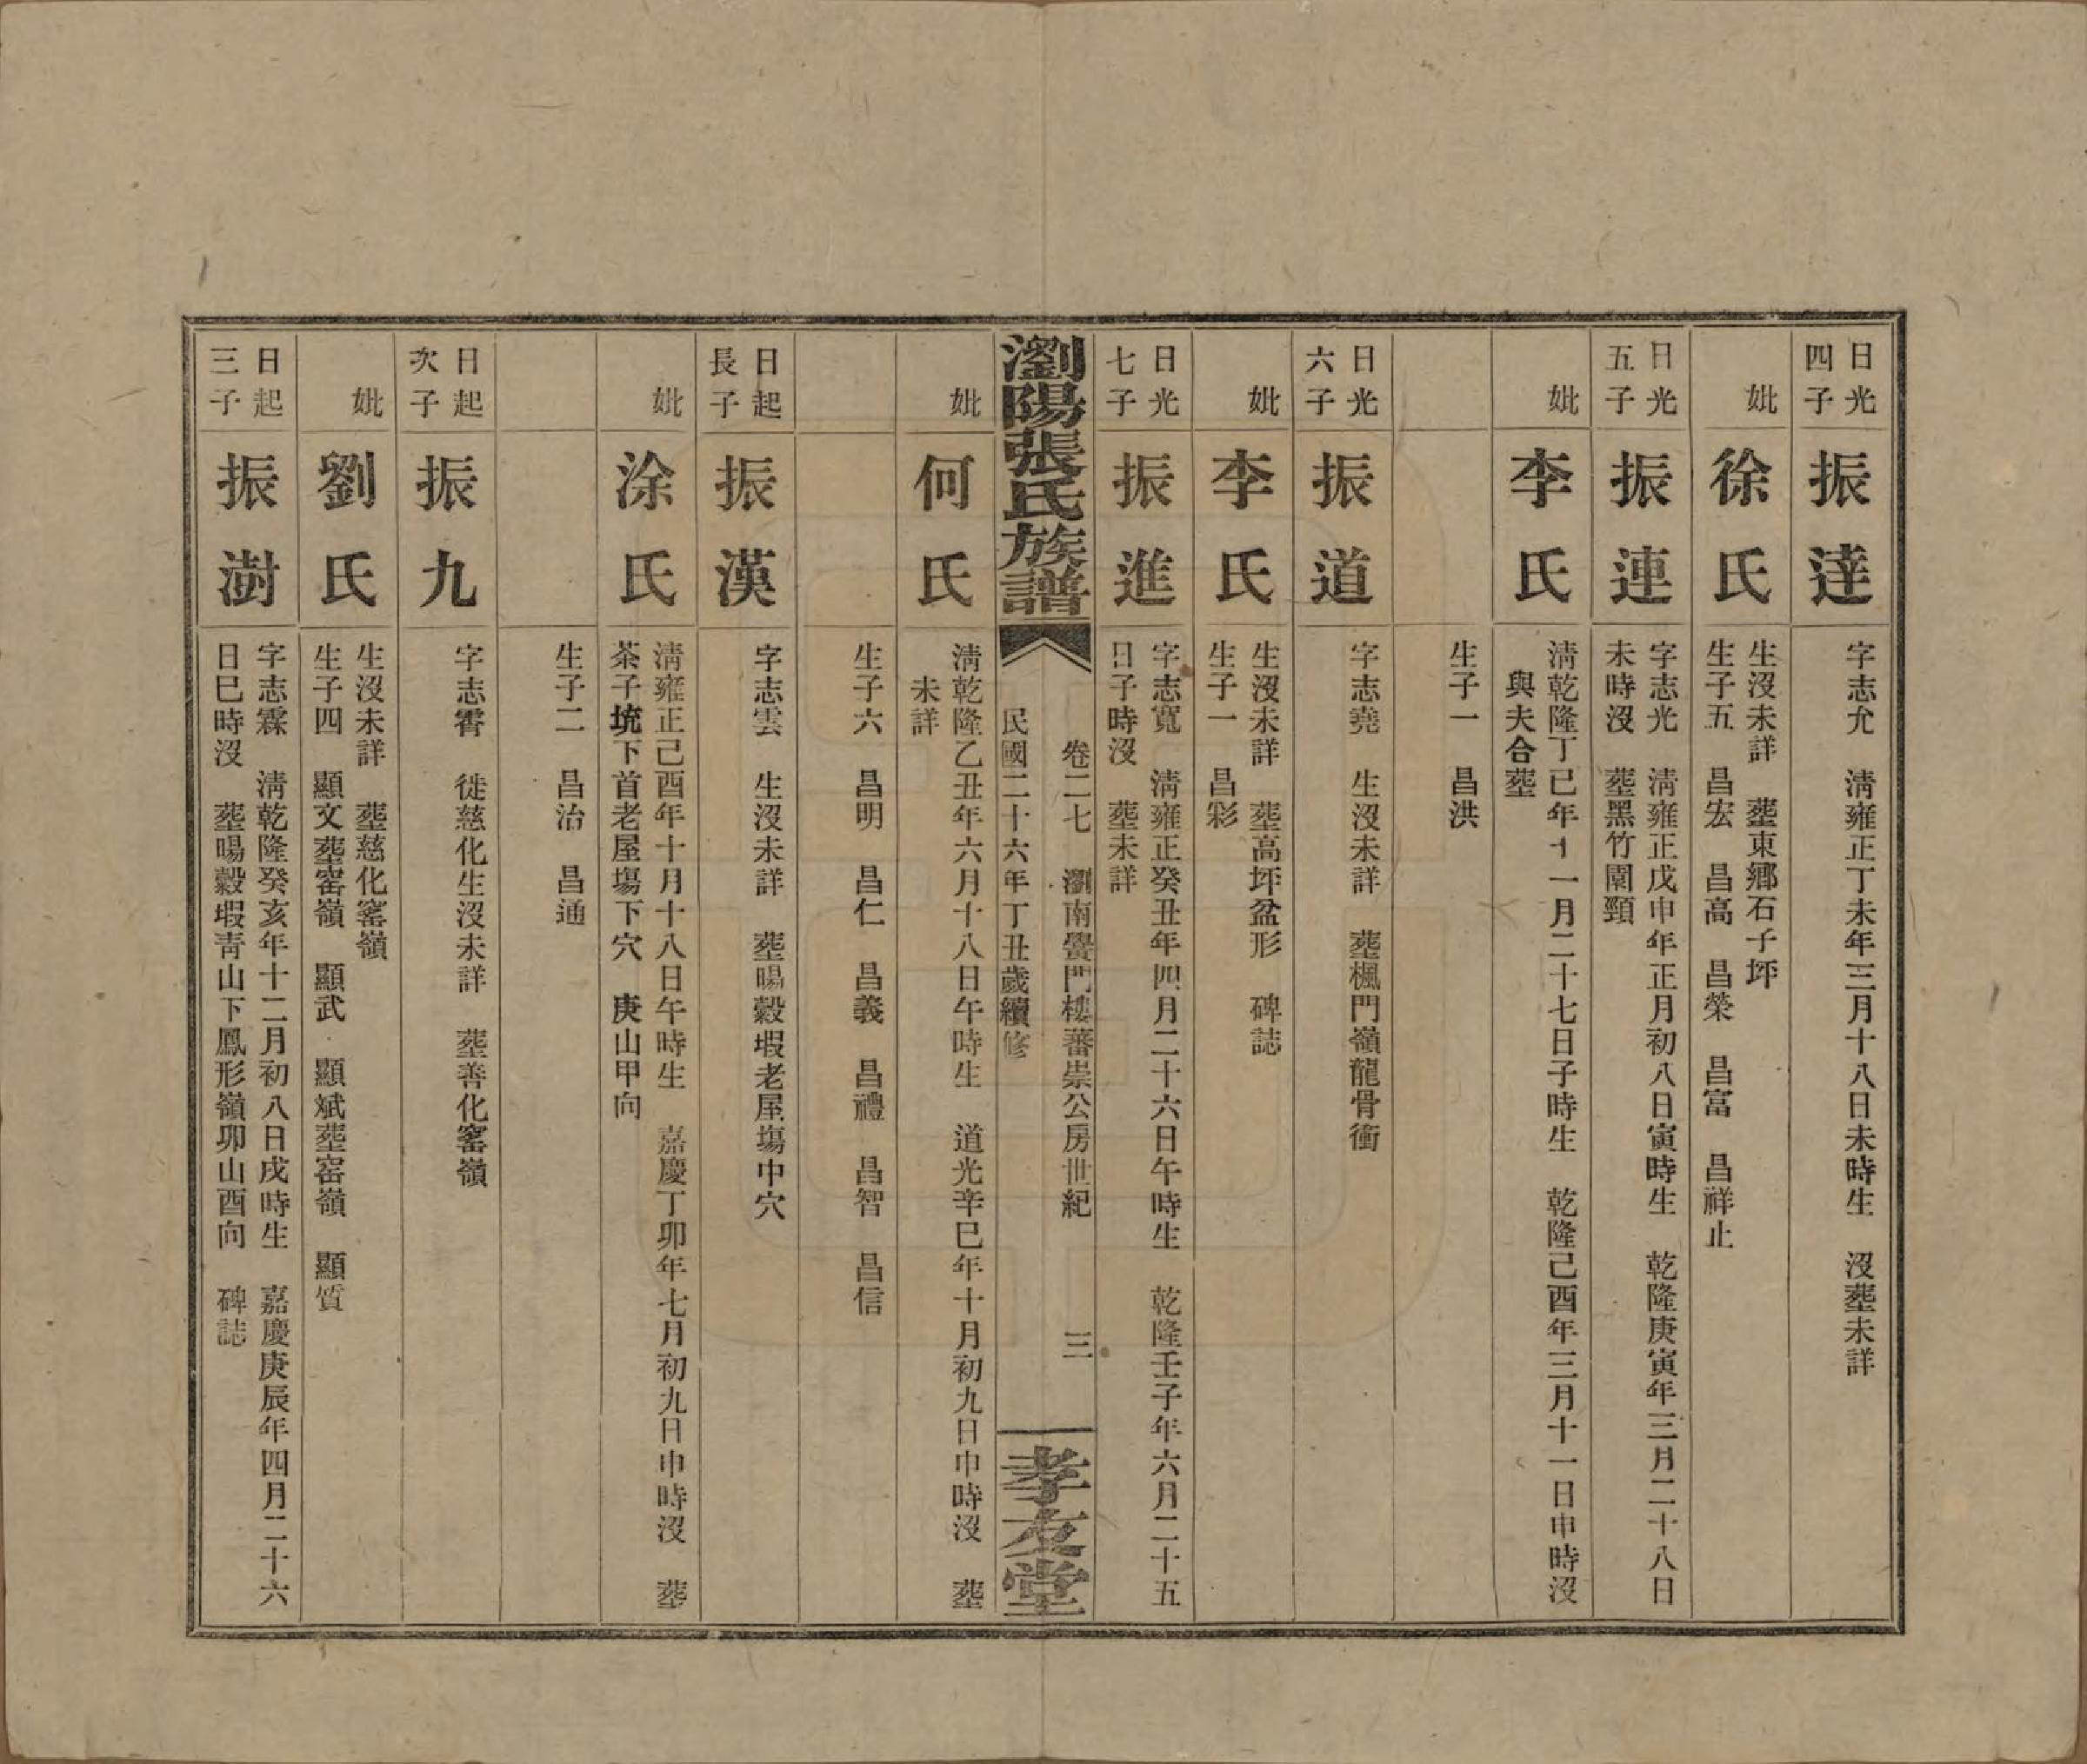 日光
四子
振達
字志允　清雍正丁未年三月十八日未時生　沒葬未詳
妣
徐氏
生沒未詳　葬東鄉石子坪
生子五　昌宏　昌高　昌榮　昌富　昌祥止
日光
五子
振連
字志光　清雍正戊申年正月初八日寅時生　乾隆庚寅年三月二十八日
未時沒　葬黑竹園頸
妣
李氏
清乾隆丁巳年十一月二十七日子時生　乾隆己酉年三月十一日申時沒
與夫合葬
生子一　昌洪
日光
六子
振道
字志堯　生沒未詳　葬楓門嶺龍骨衝
妣
李氏
生沒未詳　葬高坪盆形　碑誌
生子一　昌彩
日光
七子
振進
字志寬　清雍正癸丑年四月二十六日午時生　乾隆壬子年六月二十五
日子時沒　葬未詳
瀏陽張氏族譜
卷二七　瀏南鷽門樓蕃崇公房世紀　三
民國二十六年丁丑歲續修
孝友堂
妣
何氏
清乾隆乙丑年六月十八日午時生　道光辛巳年十月初九日申時沒　葬
未詳
生子六　昌明　昌仁　昌義　昌禮　昌智　昌信
日起
長子
振漢
字志雲　生沒未詳　葬暘穀塅老屋塲中穴
妣
涂氏
清雍正己酉年十月十八日午時生　嘉慶丁卯年七月初九日申時沒　葬
茶子塃下首老屋塲下穴　庚山甲向
生子二　昌治　昌通
日起
次子
振九
字志霄　徙慈化生沒未詳　葬善化窰嶺
妣
劉氏
生沒未詳　葬慈化窰嶺
生子四　顯文葬窑嶺　顯武　顯斌葬窑嶺　顯質
日起
三子
振澍
字志霖　清乾隆癸亥年十二月初八日戌時生　嘉慶庚辰年四月二十六
日巳時沒　葬暘穀塅青山下鳳形嶺卯山酉向　碑誌